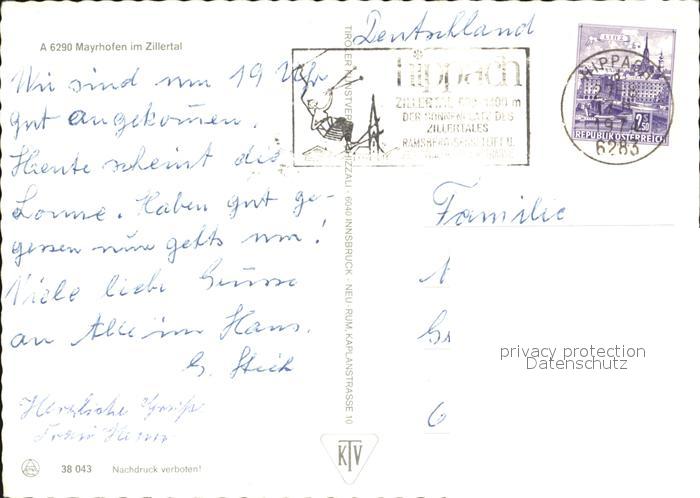 A 6290 Mayrhofen im Zillertal
Deutschland
Wir sind um 19 Uhr
gut angekommen.
Heute scheint die
Sonne. Haben gut ge-
gessen nun gehts um!
Viele liebe Grüsse
an Alle im Haus.
Herzliche Grüße
38 043 Nachdruck verboten!
6040 INNSBRUCK - NEU-RUM, KAPLANSTRASSE 10
KTV
hippach
ZILLERTAL
m
DER SONNENPLATZ DES
ZILLERTALES
LINZ
2.50
REPUBLIK ÖSTERREICH
HIPPACH
6283
Familie
N
Gr
6
privacy protection
Datenschutz